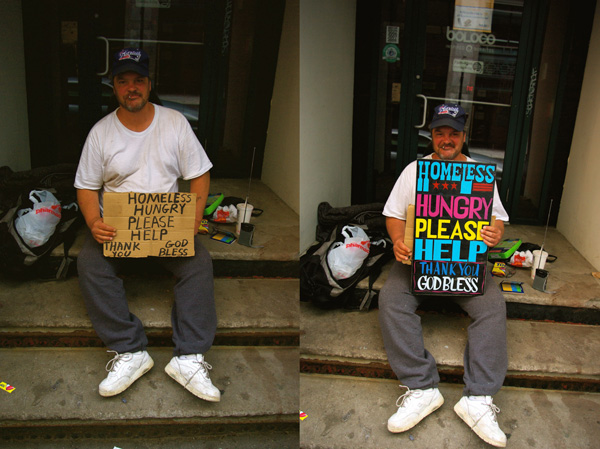 HOMELESS
HUNGRY
PLEASE
HELP
THANK GOD
YOU BLESS
bologo
HOMELESS
HUNGRY
PLEASE
HELP
THANK YOU
GOD BLESS